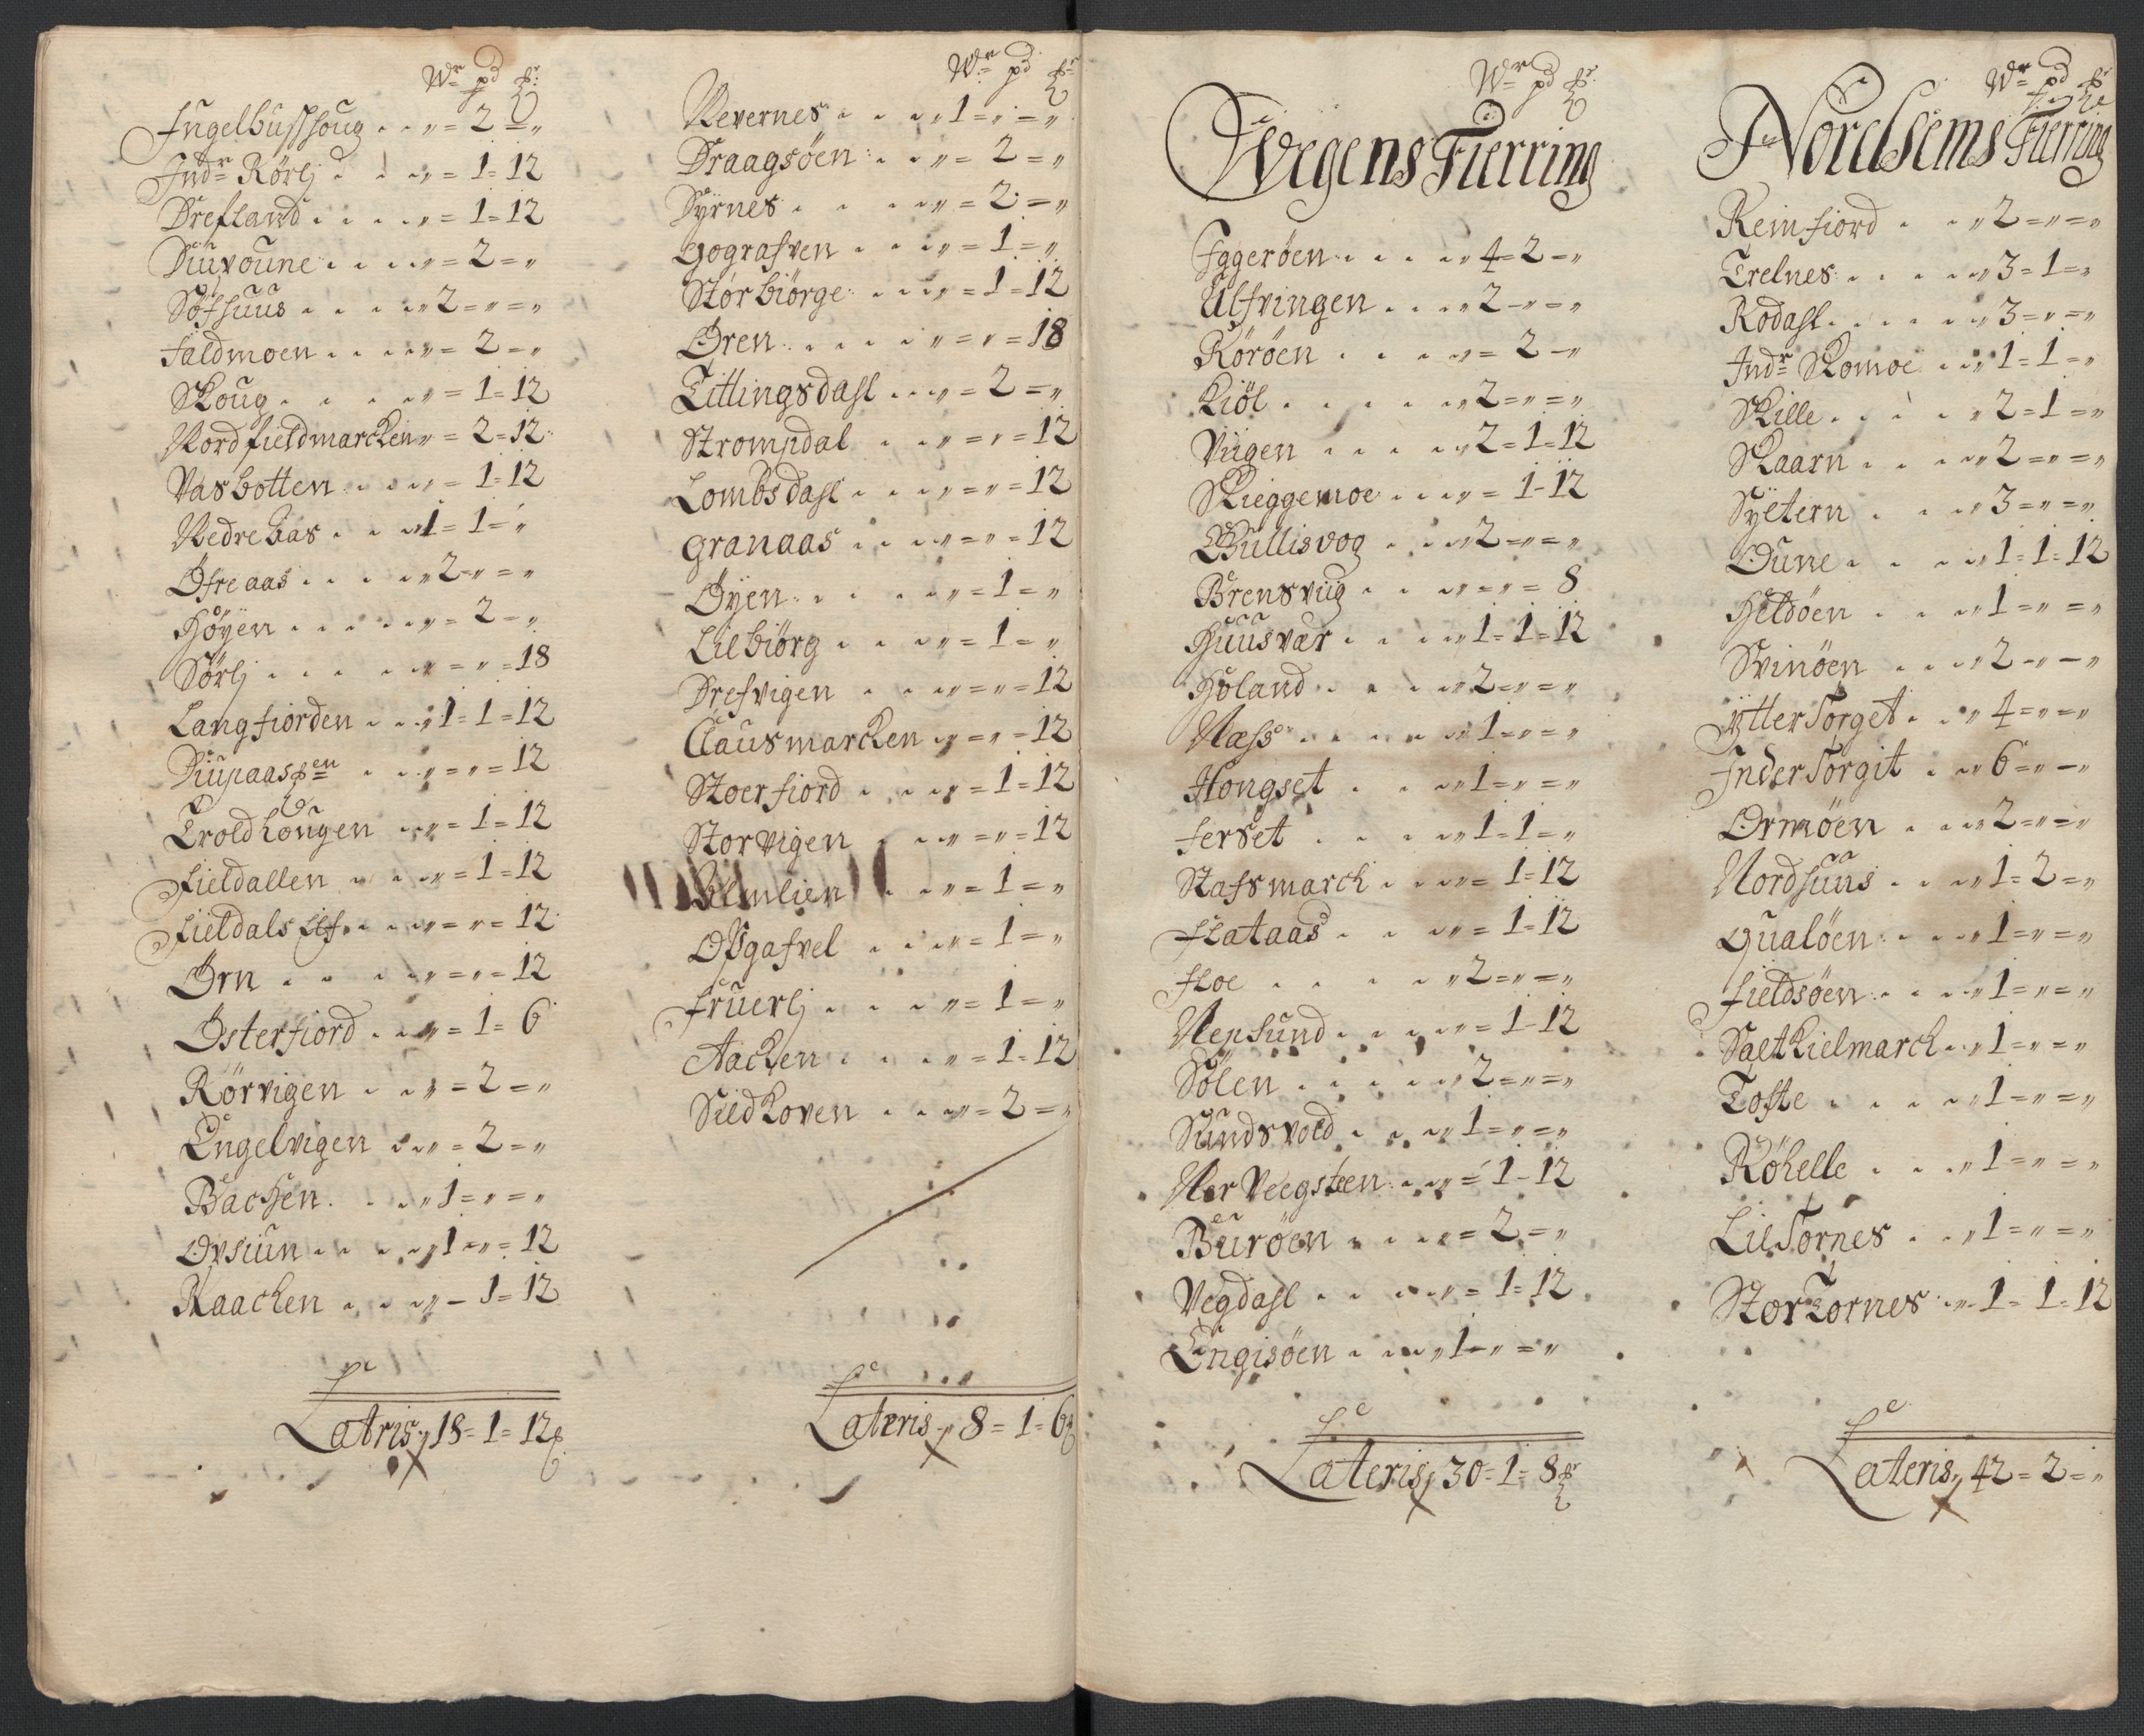 Wr pd
Ingelbusshoug . . „ = 2 = „
Indr Rörlj . . „ = 1 = 12
Drefland . . . . „ = 1 = 12
Diuvoune . . . . „ = 2 = „
Söfhuus . . . . „ 2 = „ = „
Faldmoen . . . . „ = 2 = „
Skoug . . . . „ = 1 = 12
Nordfieldmarcken „ = 2 = 12
Vasbotten . . . „ = 1 = 12
Nedre Aas . . „ 1 = 1 = „
Öfre aas . . . . „ 2 = „ = „
Höyen . . . . „ = 2 = „
Sörlj . . . . „ = „ = 18
Langfiorden . . „ 1 = 1 = 12
Diupaassen . . „ = „ = 12
Troldhougen . „ = 1 = 12
Fieldallen . . . „ = 1 = 12
Fieldals Elf . . . „ = „ = 12
Örn . . . . „ = „ = 12
Österfiord . . „ = 1 = 6
Rörvigen . . „ = 2 = „
Engelvigen . „ = 2 = „
Bachen . . . „ 1 = „ = „
Opsiun . . . . „ 1 = „ = 12
Raachen . . . „ = 1 = 12
Lateris „ 18 = 1 = 12
Wr pd
Revernes . . . „ 1 = „ = „
Draagsöen . . „ = 2 = „
Dyrnes . . . . „ = 2 = „
Gografven . . . „ = 1 = „
Storbiörge . . . „ = 1 = 12
Øren . . . . „ = „ = 18
Titlingsdahl . . „ = 2 = „
Strompdal . . „ = „ = 12
Lombsdahl . . . „ = „ = 12
Granaas . . . „ = „ = 12
Öyen . . . . „ = 1 = „
Lilbiörg . . . „ = 1 = „
Drefvigen . . . „ = „ = 12
Clausmarcken „ = „ = 12
Stoerfiord . . . „ = 1 = 12
Storvigen . . . „ = „ = 12
. . „ = 1 = „
Opgafvel . . . „ = 1 = „
Fruerlj . . . „ = 1 = „
Aachen . . . „ = 1 = 12
Sildhoven . . „ = 2 = „
Lateris „ 8 = 1 = 6
Wr pd
Wegens Fierring
Iggeröen . . . . „ 4 = 2 = „
Ulfvingen . . . „ 2 = „ = „
Röröen . . . „ = 2 = „
Kiöl . . . . . „ 2 = „ = „
Viigen . . . . „ 2 = 1 = 12
Skieggemoe . . . „ = 1 = 12
Gullisvog . . „ 2 = „ = „
Brensviig . . . „ = „ = 8
Huusvær . . . . „ 1 = 1 = 12
Höland . . . „ 2 = „ = „
Næss . . . . . „ 1 = „ = „
Hongset . . . „ 1 = „ = „
Ferset . . . . „ 1 = 1 = „
Stafsmarch . . „ = 1 = 12
Flataas . . . „ = 1 = 12
Floe . . . . „ 2 = „ = „
Nepsund . . . . „ = 1 = 12
Sölen . . . . . „ 2 = „ = „
Sundsvold . . . „ 1 = „ = „
Nor Veegsteen . . „ = 1 = 12
Buröen . . . . „ = 2 = „
Vegdahl . . . „ = 1 = 12
Engisöen . . . „ 1 = „ = „
Lateris „ 30 = 1 = 8
Wr pd
Nordsems Fierring
Reinfiord . . „ 2 = „ = „
Trelnes . . . . „ 3 = 1 = „
Rodahl . . . . „ 3 = „ = „
Indr Skomoe . . „ 1 = 1 = „
Skille . . . . „ 2 = 1 = „
Skaarn . . . „ 2 = „ = „
Syetern . . . „ 3 = „ = „
Dune . . . . „ 1 = 1 = 12
Heldöen . . . „ 1 = „ = „
Svinöen . . . „ 2 = „ = „
Ytter Torget . . „ 4 = „ = „
Inder Torgit . „ 6 = „ = „
Ormöen . . . „ 2 = „ = „
Nordhuus . . . „ 1 = 2 = „
Gualöen . . . . „ 1 = „ = „
Fieldsöen . . . „ 1 = „ = „
Saltkielmarch . „ 1 = „ = „
Tofte . . . . „ 1 = „ = „
Röhelle . . . „ 1 = „ = „
Lil Tornes . . „ 1 = „ = „
Stor Tornes . „ 1 = 1 = 12
Lateris „ 42 = 2 = „